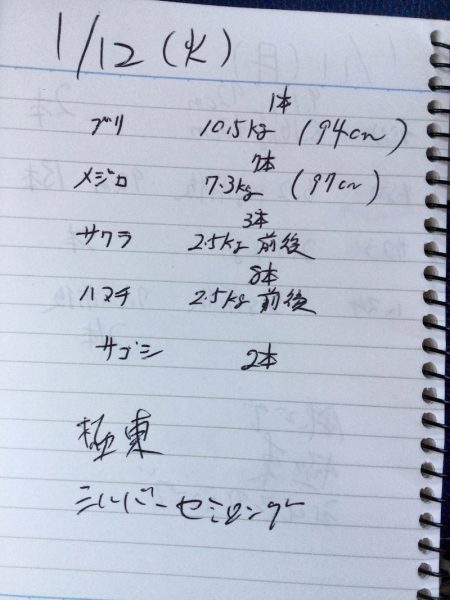 1/12 (火)
1本
ブリ 10.5kg (94cm)
7本
メジロ 7.3kg (97cm)
3本
サワラ 2.5kg 前後
8本
ハマチ 2.5kg 前後
サゴシ 2本
極東
シルバーセミロング